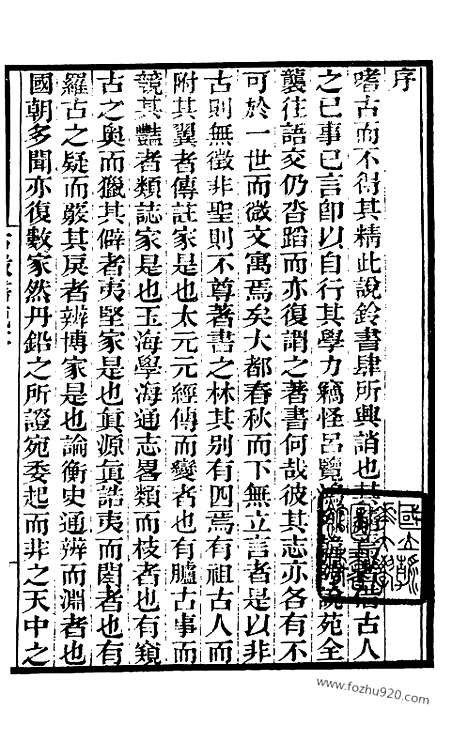 序
嗜古而不得其精此說鈴書肆所興誚也其借古人
之已事已言卽以自行其學力竊怪呂覽說苑全
襲往語交仍沓蹈而亦復謂之著書何哉彼其志亦各有不
可於一世而微文寓焉矣大都春秋而下無立言者是以非
古則無徵非聖則不尊著書之林其别有四焉有祖古人而
附其翼者傳註家是也太元元經傳而變者也有臚古事而
競其豔者類誌家是也玉海學海通志畧類而枝者也有窺
古之奥而獵其僻者夷堅家是也眞源眞誥夷而閏者也有
羅古之疑而覈其戾者辨博家是也論衡史通辨而淵者也
國朝多聞亦復數家然丹鉛之所證宛委起而非之天中之
www.fozhu920.com